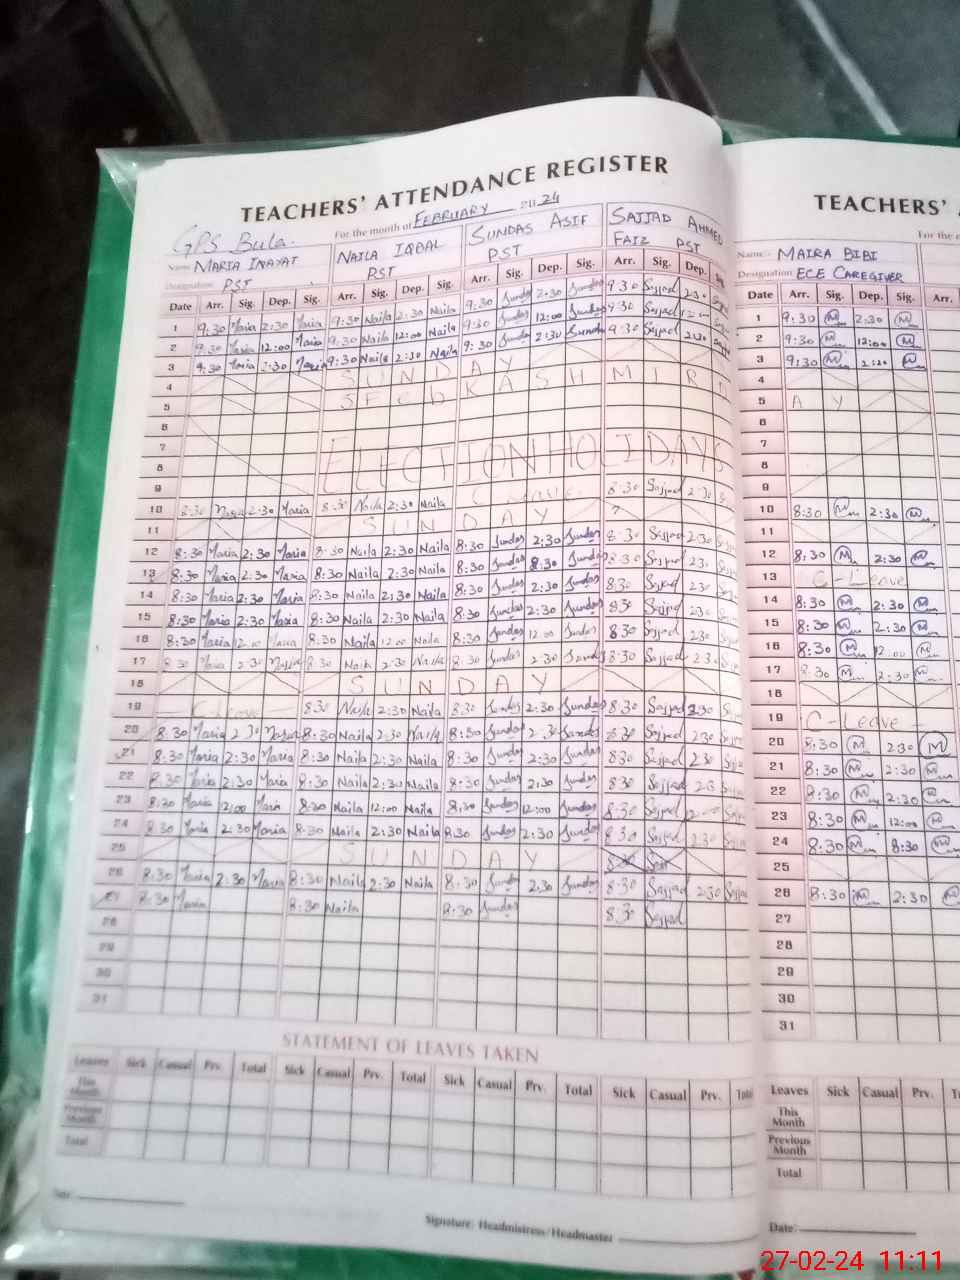 TEACHERS' ATTENDANCE REGISTER
For the month of FEBRUARY 2024
GPS Bula.
Name MARIA INAYAT NAILA IQBAL SUNDAS ASIF SAJJAD AHMED FAIZ
Designation PST PST PST PST
Date Arr. Sig. Dep. Sig. Arr. Sig. Dep. Sig. Arr. Sig. Dep. Sig. Arr. Sig. Dep.
1 9:30 Maria 2:30 Maria 9:30 Naila 2:30 Naila 9:30 Sundas 2:30 Sundas 9 30 Sajjad 2 30
2 9:30 Maria 12:00 Maria 9:30 Naila 12:00 Naila 9:30 Sundas 12:00 Sundas 9 30 Sajjad
3 9:30 Maria 2:30 Maria 9:30 Naila 2:30 Naila 9:30 Sundas 2:30 Sundas 9 30 Sajjad 2 30
4 SUNDAY
5 5 Feb KASHMIR D
6
7
8 ELECTION HOLIDAYS
9
10 8:30 Maria 2:30 Maria 8:30 Naila 2:30 Naila C Leave 8 30 Sajjad 2 30
11 SUNDAY
12 8:30 Maria 2:30 Maria 8:30 Naila 2:30 Naila 8:30 Sundas 2:30 Sundas 8 30 Sajjad 2 30
13 8:30 Maria 2:30 Maria 8:30 Naila 2:30 Naila 8:30 Sundas 8:30 Sundas 8 30 Sajjad 2 30
14 8:30 Maria 2:30 Maria 8:30 Naila 2:30 Naila 8:30 Sundas 2:30 Sundas 8 30 Sajjad 2 30
15 8:30 Maria 2:30 Maria 8:30 Naila 2:30 Naila 8:30 Sundas 2:30 Sundas 8 30 Sajjad 2 30
16 8:30 Maria 12:00 Maria 8:30 Naila 12:00 Naila 8:30 Sundas 12:00 Sundas 8 30 Sajjad 2 30
17 8:30 Maria 2:30 Maria 8:30 Naila 2:30 Naila 8:30 Sundas 2:30 Sundas 8 30 Sajjad 2 30
18 SUNDAY
19 C-Leave 8:30 Naila 2:30 Naila 8:30 Sundas 2:30 Sundas 8 30 Sajjad 2 30
20 8:30 Maria 2:30 Maria 8:30 Naila 2:30 Naila 8:30 Sundas 2:30 Sundas 8 30 Sajjad 2 30
21 8:30 Maria 2:30 Maria 8:30 Naila 2:30 Naila 8:30 Sundas 2:30 Sundas 8 30 Sajjad 2 30
22 8:30 Maria 2:30 Maria 8:30 Naila 2:30 Naila 8:30 Sundas 2:30 Sundas 8 30 Sajjad 2 30
23 8:30 Maria 12:00 Maria 8:30 Naila 12:00 Naila 8:30 Sundas 12:00 Sundas 8 30 Sajjad
24 8:30 Maria 2:30 Maria 8:30 Naila 2:30 Naila 8:30 Sundas 2:30 Sundas 8 30 Sajjad 2 30
25 SUNDAY
26 8:30 Maria 2:30 Maria 8:30 Naila 2:30 Naila 8:30 Sundas 2:30 Sundas 8:30 Sajjad 2:30 Sajjad
27 8:30 Maria 8:30 Naila 8:30 Sundas 8 30 Sajjad
28
29
30
31
STATEMENT OF LEAVES TAKEN
Leaves Sick Casual Prv. Total Sick Casual Prv. Total Sick Casual Prv. Total Sick Casual Prv. Total
This Month
Previous Month
Total
Date:
Signature: Headmistress/Headmaster
TEACHERS'
For the
Name:- MAIRA BIBI
Designation ECE CAREGIVER
Date Arr. Sig. Dep. Sig. Arr.
1 9:30 2:30
2 9:30 12:00
3 9:30
4
5 A Y
6
7
8
9
10 8:30 2:30
11
12 8:30 2:30
13 C-Leave
14 8:30 2:30
15 8:30 2:30
16 8:30 12:00
17 8:30 2:30
18
19 C-Leave
20 8:30 2:30
21 8:30 2:30
22 8:30 2:30
23 8:30 12:00
24 8:30 8:30
25
26 8:30 2:30
27
28
29
30
31
Leaves Sick Casual Prv.
This Month
Previous Month
Total
Date:
27-02-24 11:11